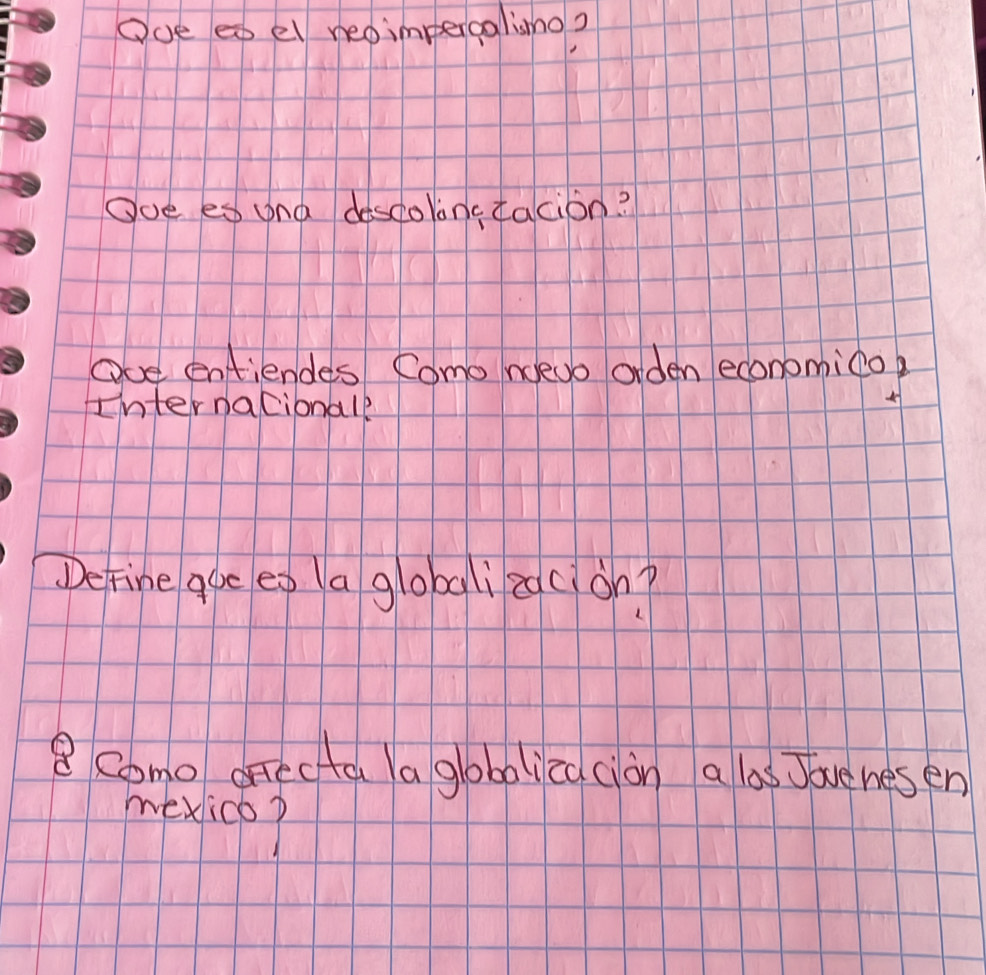 Que es el neoimperialismo?
Que es una descolinización?
Que entiendes Como nuevo orden economico?
Internacional?
Define que es la globalización?
¿Como afecta la globalización a los Jovenes en
mexico?